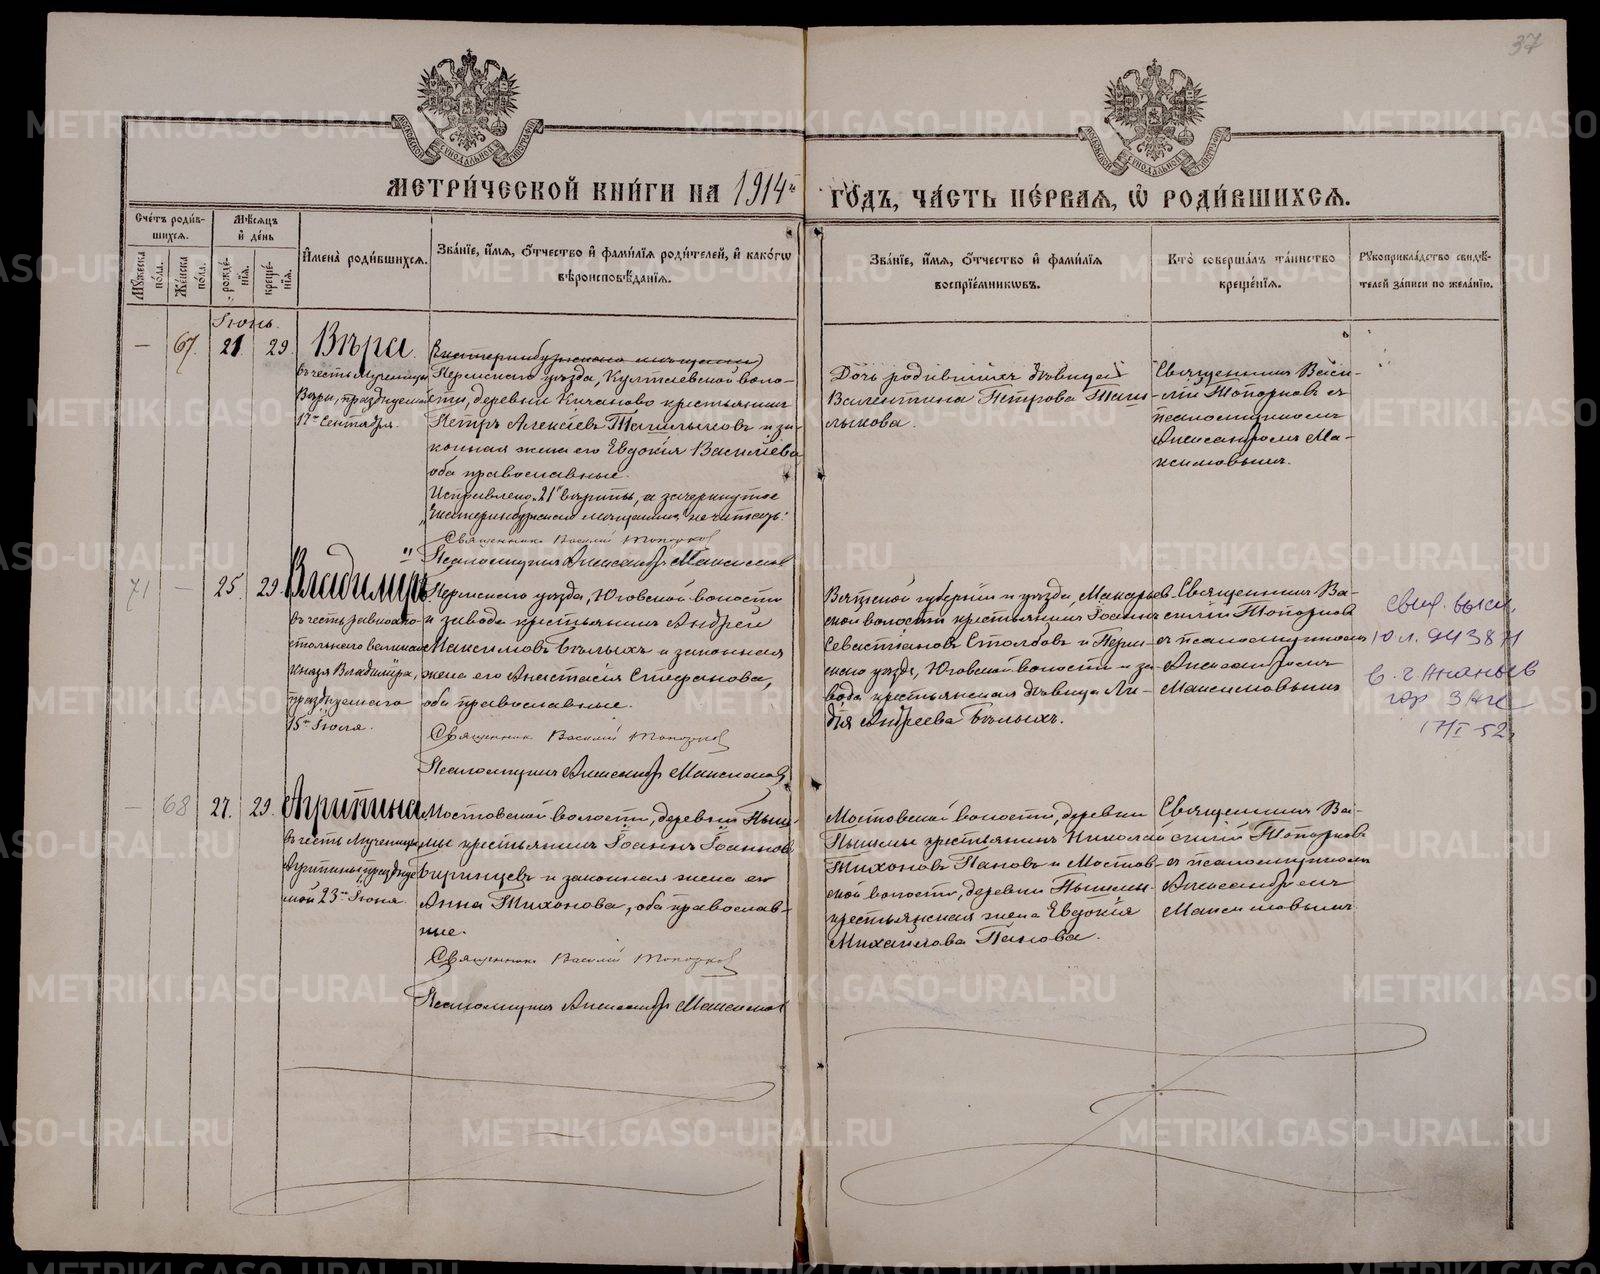 37
МОСКОВСКОЙ СѴНОДАЛЬНОЙ ТИПОГРАФІИ
МОСКОВСКОЙ СѴНОДАЛЬНОЙ ТИПОГРАФІИ
МЕТРИ́ЧЕСКОЙ КНИ́ГИ НА 1914й ГО́ДЪ, ЧА́СТЬ ПЕ́РВАѦ, Ѡ҆ РОДИ́ВШИХСѦ.
Сче́тъ роди́в-
шихсѧ.
Мѣ́сѧцъ
и҆ де́нь
Му́жеска по́ла.
Же́нска по́ла.
рожде́-нїѧ.
креще́-нїѧ.
И҆мена̀ роди́вшихсѧ.
Зва́нїе, и҆́мѧ, ѻ҆́тчество и҆ фами́лїѧ роди́телей, и҆ како́гѡ
вѣроисповѣ́данїѧ.
Зва́нїе, и҆́мѧ, ѻ҆́тчество и҆ фами́лїѧ
воспрїе́мникѡвъ.
Кто̀ соверша́лъ та́инство
креще́нїѧ.
Рꙋкоприкла́дство свидѣ́-
телей за́писи по жела́нїю.
Іюнь.
— 67. 21 29.
Вѣра.
въ честь Мученицы
Вѣры, празднуемой
17го Сентября.
Екатеринбургскаго мѣщанин
Пермскаго уѣзда, Култаевской воло-
сти, деревни Кичаново крестьянинъ
Петръ Алексіевъ Тапилыковъ и за-
конная жена его Евдокія Васильева
оба православные.
Исправлено „21“ вѣрить, а зачеркнутое
„Екатеринбургскаго мѣщанинъ“ не читать:
Священникъ Василій Топорков
Псаломщикъ Александръ Максимов
Дочь родившихъ дѣвица
Валентина Петрова Тапи-
лыкова.
Священникъ Васи-
лій Топорковъ съ
псаломщикомъ
Александромъ Ма-
ксимовымъ.
71 — 25. 29.
Владиміръ
въ честь равноапо-
стольнаго великаго
князя Владиміра,
празднуемаго
15го Іюля.
Пермскаго уѣзда, Юговской волости
и завода крестьянинъ Андрей
Максимовъ Бѣлыхъ и законная
жена его Анастасія Стефанова,
оба православные.
Священникъ Василій Топорков
Псаломщикъ Александръ Максимов
Вятской губерніи и уѣзда, Макарьев-
ской волости крестьянинъ Іоаннъ
Севастіановъ Столбовъ и Перм-
скаго уѣзда, Юговской волости и за-
вода крестьянская дѣвица Ли-
дія Андреева Бѣлыхъ.
Священникъ Ва-
силій Топорковъ
съ псаломщикомъ
Александромъ
Максимовымъ
свид. высл.
17/I-52г
— 68 27. 29.
Агрипина
въ честь Мученицы
Агрипины, праздну-
мой 23го Іюня.
Мостовской волости, деревни Пыш-
мы крестьянинъ Іоаннъ Іоанновъ
Биринцевъ и законная жена его
Анна Тихонова, оба православ-
ные.
Священникъ Василій Топорков
Псаломщикъ Александръ Максимов
Мостовской волости, деревни
Пышмы крестьянинъ Николай
Тихоновъ Пановъ и Мостов-
ской волости, деревни Пышмы
крестьянская жена Евдокія
Михайлова Панова.
Священникъ Ва-
силій Топорковъ
съ псаломщикомъ
Александромъ
Максимовымъ
METRIKI.GASO-URAL.RU